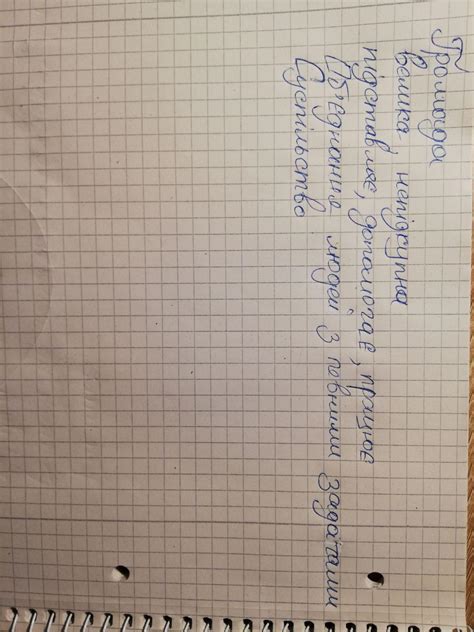 Громада
велика, непідкупна
підставляє, допомагає, працює
Об'єднання людей з певними задачами
Суспільство